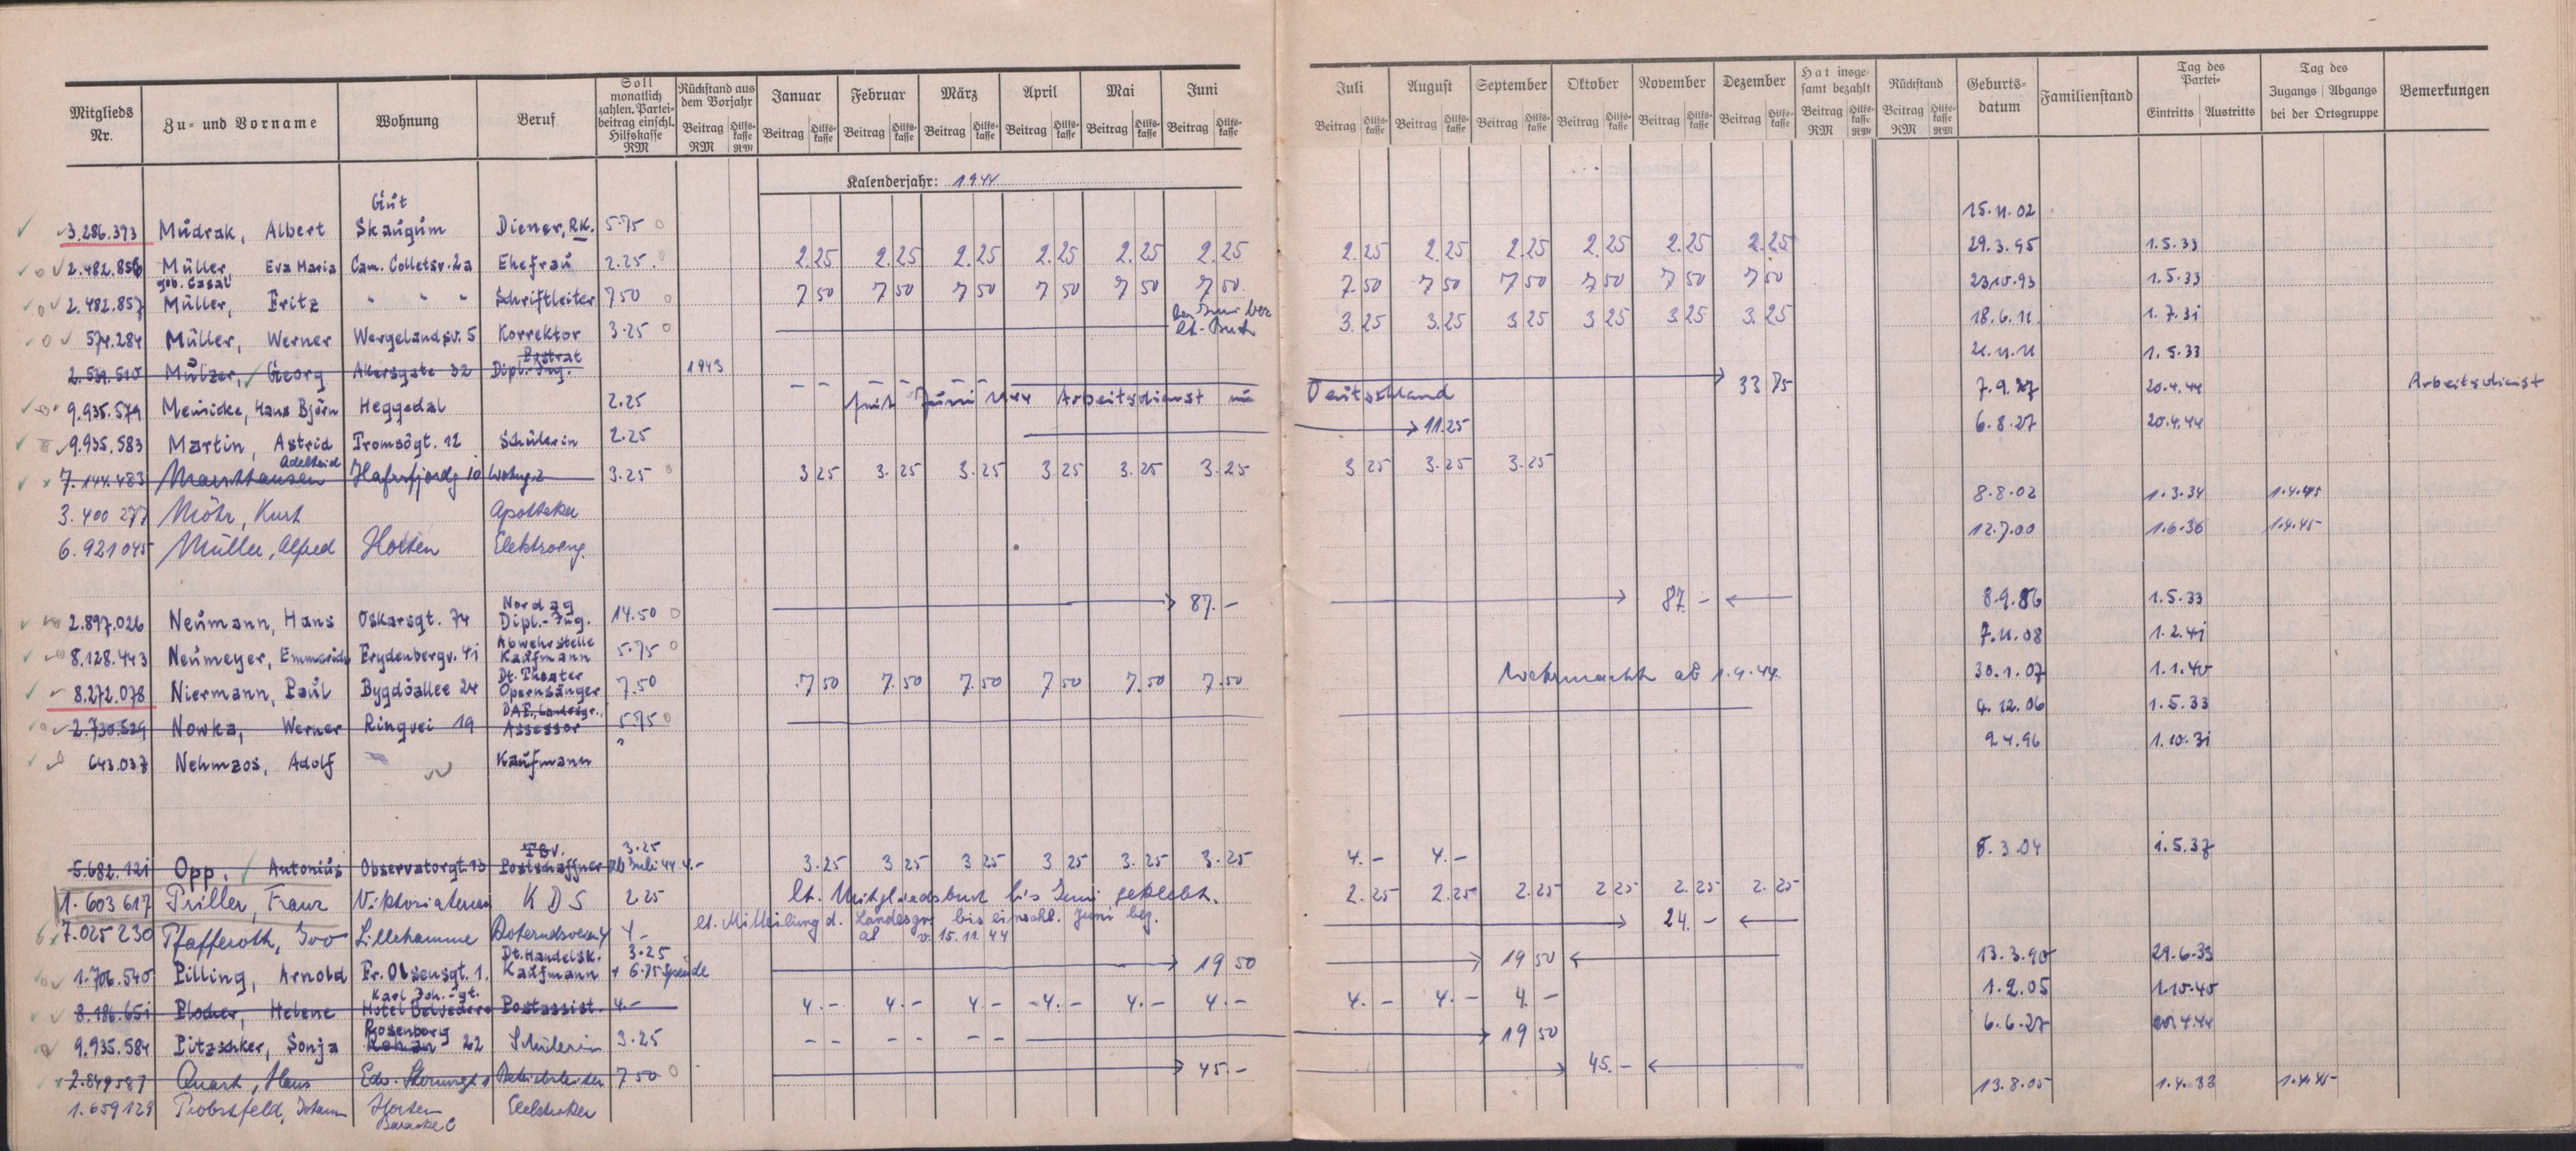 Mitglieds Nr. | Zu- und Vorname | Wohnung | Beruf | Soll monatlich zahlen. Partei-beitrag einschl. Hilfskasse RM | Rückstand aus dem Vorjahr Beitrag RM Hilfs-kasse RM | Januar Beitrag Hilfs-kasse | Februar Beitrag Hilfs-kasse | März Beitrag Hilfs-kasse | April Beitrag Hilfs-kasse | Mai Beitrag Hilfs-kasse | Juni Beitrag Hilfs-kasse | Juli Beitrag Hilfs-kasse | August Beitrag Hilfs-kasse | September Beitrag Hilfs-kasse | Oktober Beitrag Hilfs-kasse | November Beitrag Hilfs-kasse | Dezember Beitrag Hilfs-kasse | Hat insge-samt bezahlt Beitrag RM Hilfs-kasse RM | Rückstand Beitrag RM Hilfs-kasse RM | Geburts-datum | Familienstand | Tag des Partei- Eintritts Austritts | Tag des Zugangs Abgangs bei der Ortsgruppe | Bemerkungen
Kalenderjahr: 1944
3.286.393 Mudrak, Albert Gut Skaugum Diener, RK. 5.75 15.11.02
2.482.856 Müller, Eva Maria geb. Casal Cam. Colletsv. 2a Ehefrau 2.25 2.25 2.25 2.25 2.25 2.25 2.25 2.25 2.25 2.25 2.25 2.25 2.25 29.3.95 1.5.33
2.482.857 Müller, Fritz " " " Schriftleiter 7.50 7 50 7 50 7 50 7 50 7 50 7 50 7 50 7 50 7 50 7 50 7 50 7 50 23.10.93 1.5.33
574.284 Müller, Werner Wergelandsv. 5 Korrektor 3.25 Juni lt. Buch 3.25 3.25 3.25 3.25 3.25 3.25 18.6.11 1.7.31
2.539.510 Mülzer, Georg Akersgate 32 Postrat Dipl.-Ing. 1943 33 75 21.11.11 1.5.33
9.935.579 Meinicke, Hans Björn Heggedal 2.25 seit Juni 1944 Arbeitsdienst in Deutschland 7.9.27 20.4.44 Arbeitsdienst
9.935.583 Martin, Astrid Tromsögt. 12 Schülerin 2.25 11.25 6.8.27 20.4.44
7.144.483 Adelheid 10 3.25 3 25 3.25 3.25 3 25 3.25 3.25 3 25 3.25 3.25
3.400 277 Möhr, Kurt Apotheker 8.8.02 1.3.34 1.4.45
6.921045 Müller, Alfred Horten Elektroing. 12.7.00 1.6.36 1.4.45
2.897.026 Neumann, Hans Oskarsgt. 74 Nordag Dipl.-Ing. 14.50 87.- 87.- 8.9.86 1.5.33
8.128.443 Neumeyer, Emmerich Frydenbergv. 41 Abwehrstelle Kaufmann 5.75 7.11.08 1.2.41
8.272.078 Niermann, Paul Bygdöallee 24 Dt. Theater Opernsänger 7.50 7 50 7.50 7.50 7 50 7.50 7.50 Wehrmacht ab 1.9.44. 30.1.07 1.1.40
2.730.529 Nowka, Werner Ringvei 19 DAF., Landesgr. Assessor 5.75 9.12.06 1.5.33
643.037 Nehmzos, Adolf Kaufmann ? 2.4.96 1.10.31
5.682.121 Opp, Antonius Observatorgt. 13 Postschaffner 3.25 ab Juli 44 4.- 3.25 3 25 3 25 3 25 3.25 3.25 4.- 4.- 8.3.04 1.5.37
1.603 617 Priller, Franz Viktoriaterrasse K D S 2 25 lt. Mitgliedsbuch bis Juni geklebt. 2.25 2.25 2.25 2 25 2.25 2.25
7.025 230 Pfafferoth, Ivo Lillehammer 4.- lt. Mitteilung d. Landesgr. bis einschl. Juni bez. v. 15.11.44 24.-
1.706.540 Pilling, Arnold Fr. Olsensgt. 1. Dt. Handelsk. Kaufmann 3.25 + 6.75 Spende 19 50 19 50 13.3.90 29.6.33
8.186.651 Plocher, Helene Karl Joh.-gt. Hotel Belvedere Postassist. 4.- 4.- 4.- 4.- 4.- 4.- 4.- 4.- 4.- 4.- 1.2.05 1.10.40
9.935.584 Pitzschker, Sonja Rosenborg 22 Schülerin 3.25 19 50 6.6.27 20.4.44
2.849587 Quast, Hans Betriebsleiter 7 50 45.- 45.-
1.659129 Probstfeld, Johann Horten Baracke C Elektriker 13.8.05 1.4.33 1.4.45